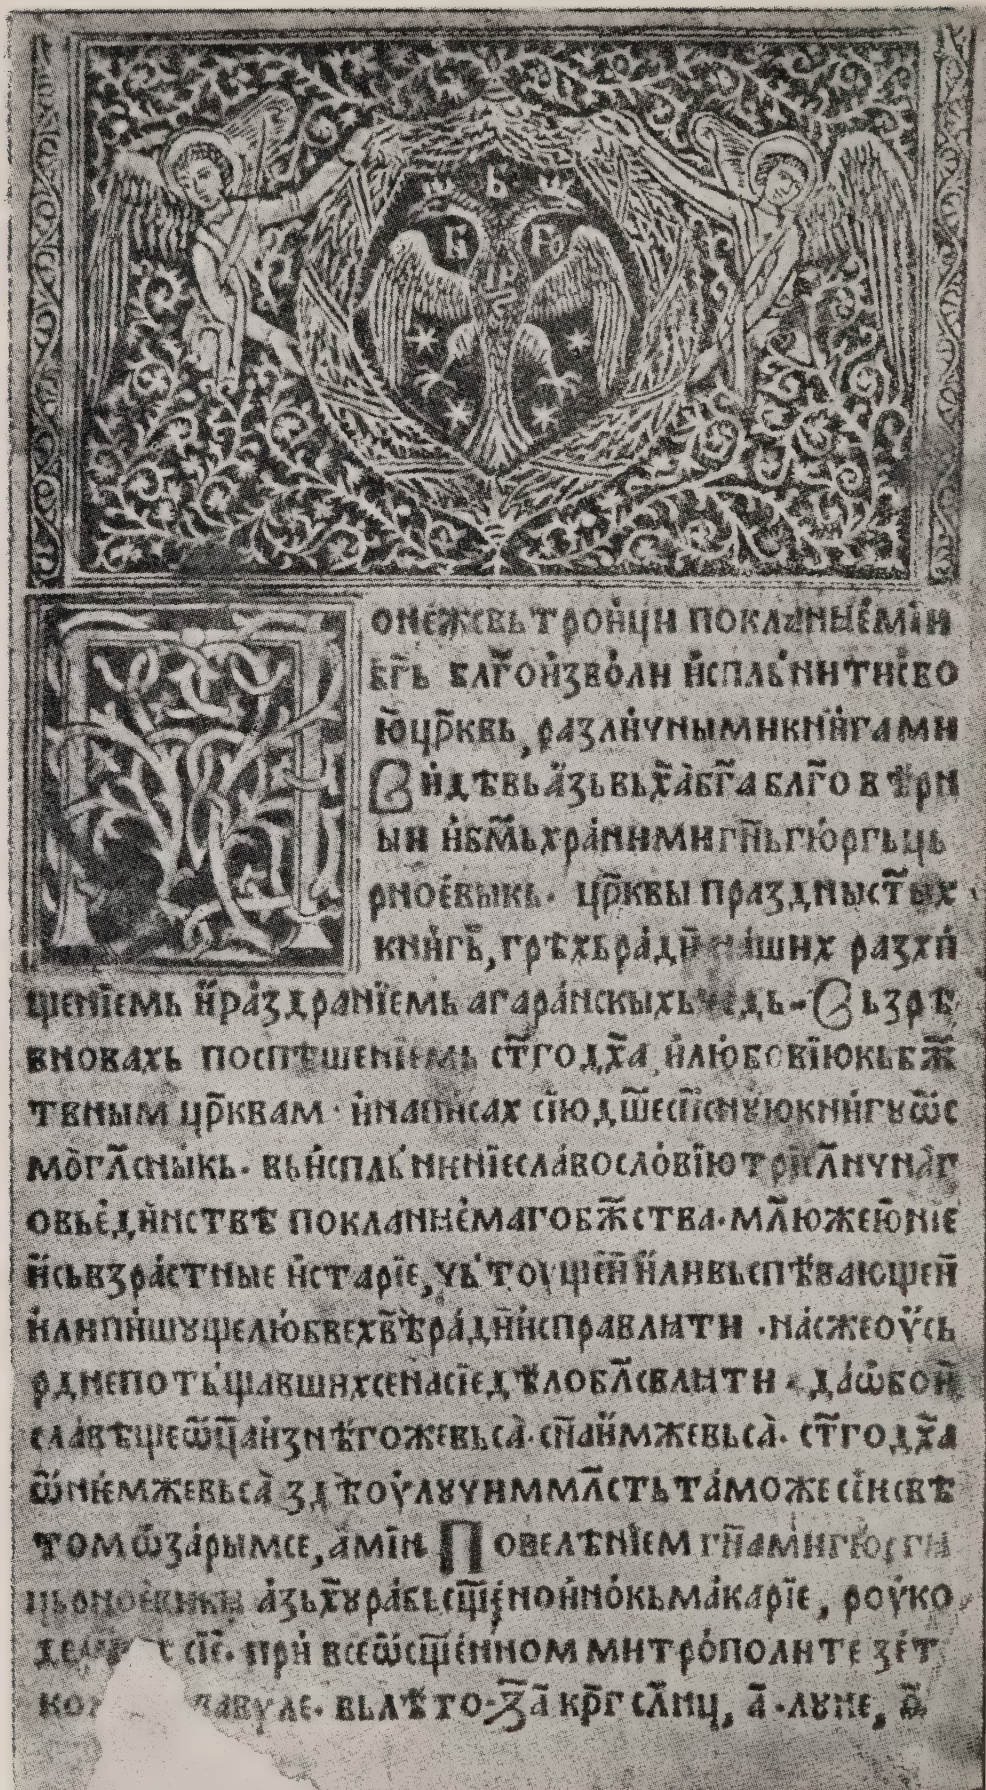 Ь
Б Го
ПОНЕ́ЖЕ ВЬ ТРОИ́ЦИ ПОКЛАНꙖЕ́МЇИ
Б҃Ь БЛГ҃ОИ́ЗВО́ЛИ И́СПЛЬ́НИТИ СВО
Ю̀ ЦР҃КВЬ, РАЗЛИ́ЧНЫМИ КНИ́ГАМИ
ВИ́ДѢВЬ А́ЗЬ ВЬ Х҃А̀ БГ҃А БЛГ҃ОВѢ́РН
ЫИ И́ Б҃МЬ ХРА́НИМИ ГН҃Ь ГЮ́РГЬ ЦЬ
РНОЕ́ВЫКЬ. ЦР҃КВЫ ПРАЗДНЫ СТ҃ЫХ
КНИ́ГЬ, ГРѢ́ХЬ РА́ДИ НА́ШИХ РАЗХИ́
ЩЕНЇЕМЬ И́ РА́ЗДРАНЇЕМЬ АГАРА́НСКЫХЬ ЧЕДЬ - ВЬЗРѢ
ВНОВАХЬ ПОСПѢШЕНЇЕМЬ СТ҃ГО ДХ҃А, И́ ЛЮБОВЇЮ КЬ БЖ҃
ТВНЫМ ЦР҃КВАМ. И́ НАПИСАХ СЇЮ ДШ҃ЕСП҃СНꙊЮ КНИ́ГꙊ Ѿ С
МО̀ГЛ҃СНЫ́КЬ. ВЬ И́СПЛЬ́НКНЇЕ СЛА́ВОСЛО́ВЇЮ ТРИ́ЛИЧНАГ
О ВЬ Е́ДИ́НСТВѢ ПОКЛАНꙖЕ́МАГО БЖ҃СТВА. МЛ҃Ю ЖЕ Ю́НЇЕ
И́ СЬВЗРА́СТНЫЕ И́ СТАРЇЕ, ЧЬ́ТОУЩЇЕИ́ И́ЛИ ВЬСПѢ́ВАЮЩЕИ́
И́ЛИ ПИ́ШꙊЩЕ ЛЮ́БВЕ Х҃ВѢ РА́ДИ И́СПРАВЛꙖТИ. НА́С ЖЕ ОУ́СЬ
РДНЕ ПОТЬ́ЩАВШИХ СЕ НА СЇЕ ДѢ́ЛО БЛ҃СВЛꙖТИ. ДА́ Ѡ҆БОИ́
СЛАВѢЩЕ ѾЦ҃А И́З НѢ́ГОЖЕ ВЬСА̀. СН҃А И́МЖЕ ВЬСА̀. СТ҃ГО ДХ҃А
Ѡ́ НЕ́МЖЕ ВЬСА̀ ЗДѢ ОУ́ЛꙊЧИМ МЛ҃СТЬ ТА́МОЖЕ СЇИ СВѢ
ТОМ ѠЗА́РЫМ СЕ, А́МЇН ПОВЕЛѢНЇЕМ ГН҃А МИ ГЮ́РГꙖ
ЦЬРНОЕ́ВИКꙖ А́ЗЬ Х҃Ꙋ РА́БЬ СЩ҃Е́НОИНО́КЬ МА́КАРЇЕ, РОУ́КО
СЇЀ. ПРИ́ ВСЕѠСЩ҃Е́ННОМ МИТРО́ПОЛИТЕ ЗЕ́Т
ВАВѴЛЕ. ВЬ ЛѢ́ТО ҂З҃А КР҃Г СЛ҃НЦ, А҃. ЛꙊНЕ,